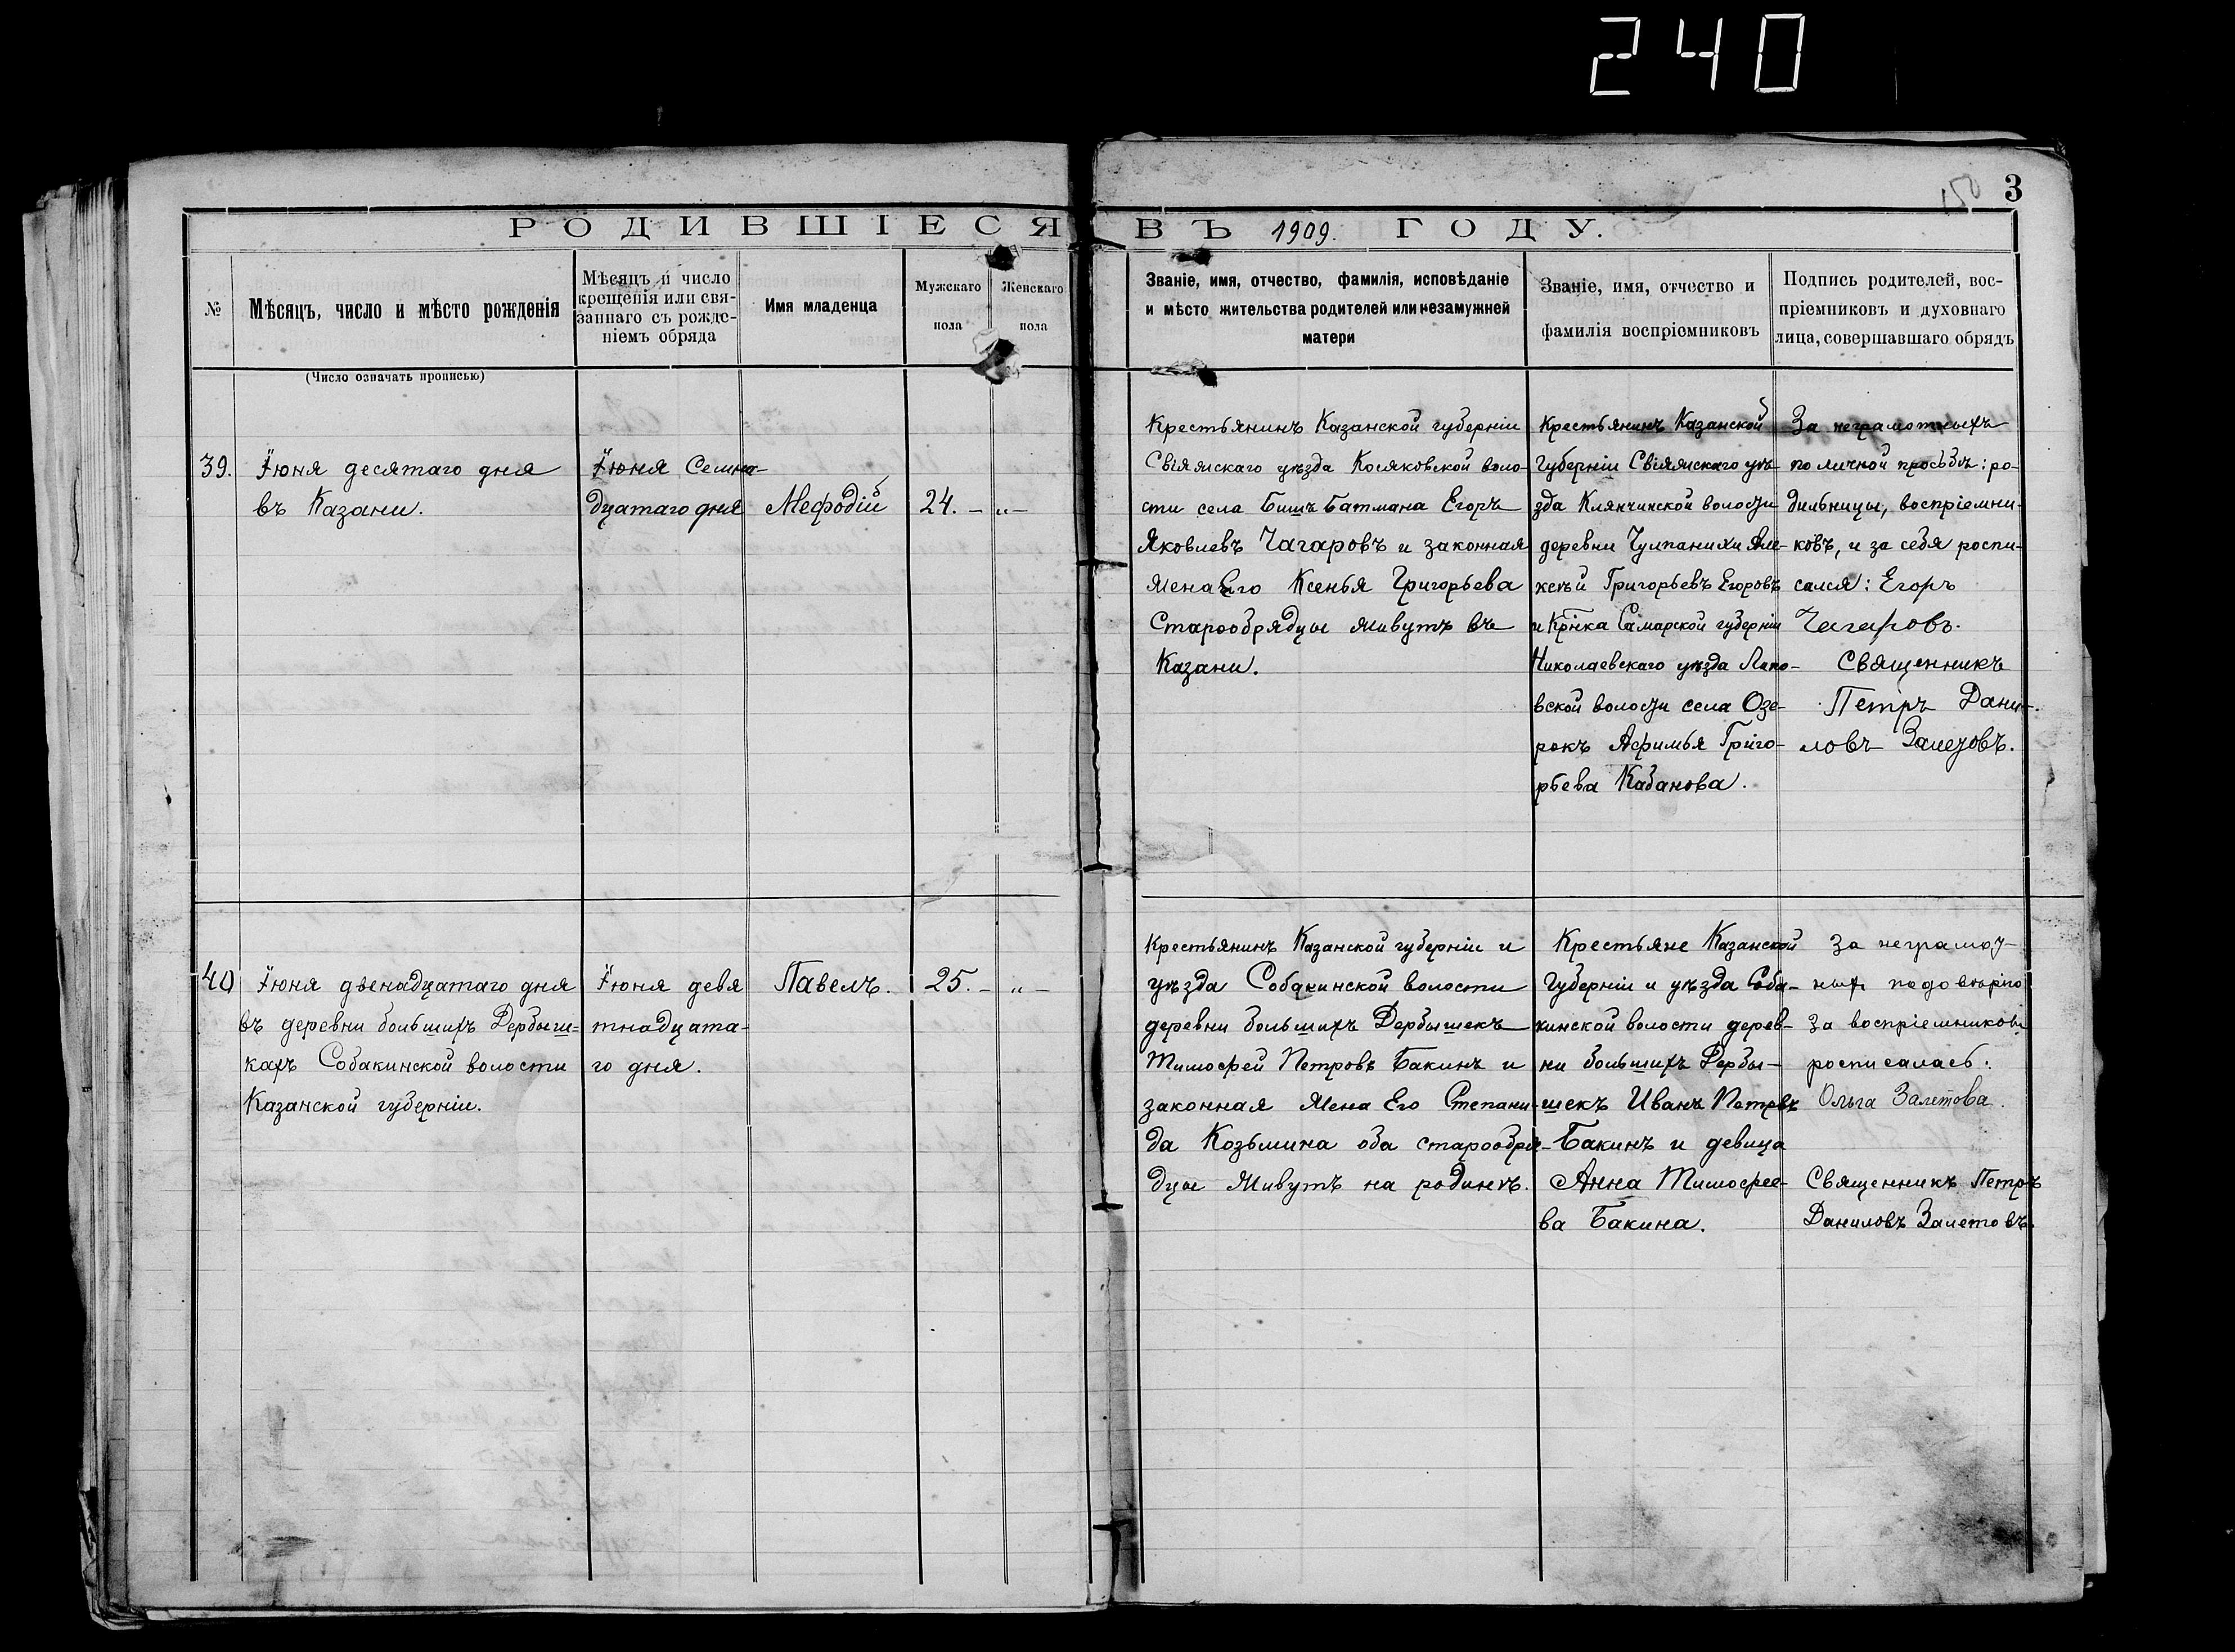 240
3
РОДИВШІЕСЯ ВЪ 1909. ГОДУ.
№
Мѣсяцъ, число и мѣсто рожденія
(Число означать прописью)
Мѣсяцъ и число
крещенія или свя-
заннаго съ рожде-
ніемъ обряда
Имя младенца
Мужскаго
пола
Женскаго
пола
Званіе, имя, отчество, фамилія, исповѣданіе
и мѣсто жительства родителей или незамужней
матери
Званіе, имя, отчество и
фамилія воспріемниковъ
Подпись родителей, вос-
пріемниковъ и духовнаго
лица, совершавшаго обрядъ
39.
Іюня десятаго дня
въ Казани.
Іюня Семна-
дцатаго дня
Мефодій
24. –
„ –
Крестьянинъ Казанской губерніи
Свіяжскаго уѣзда Косяковской воло-
сти села Бишъ Батмана Егоръ
Яковлевъ Чагаровъ и законная
жена Его Ксенья Григорьева
Старообрядцы живутъ въ
Казани.
Крестьянинъ Казанской
Губерніи Свіяжскаго уѣ-
зда Клянчинской волости
деревни Чулпанихи Але-
ксѣй Григорьевъ Егоровъ
и Кр-нка Самарской губерніи
Николаевскаго уѣзда
вской волости села Озе-
рокъ Афимья Григо-
рьева Кабанова.
За неграмотныхъ
по личной просьбѣ: ро-
дильницы, воспріемни-
ковъ, и за себя роспи-
сался: Егоръ
Чагаровъ.
Священникъ
Петръ Дани-
ловъ Залетовъ.
40
Іюня двенадцатаго дня
въ деревни большихъ Дербыш-
кахъ Собакинской волости
Казанской губерніи.
Іюня девя
тнадцата-
го дня.
Павелъ.
25. –
„ –
Крестьянинъ Казанской губерніи и
уѣзда Собакинской волости
деревни большихъ Дербышекъ
Тимофей Петровъ Бакинъ и
законная жена Его Степани-
да Козьмина оба старообря-
дцы живутъ на родинѣ.
Крестьяне Казанской
Губерніи и уѣзда Соба-
кинской волости дерев-
ни большихъ Дербы-
шекъ Иванъ Петровъ
Бакинъ и девица
Анна Тимофее-
ва Бакина.
За неграмот-
ныхъ
за воспріемниковъ
росписалась:
Ольга Залетова.
Священникъ Петръ
Даниловъ Залетовъ.